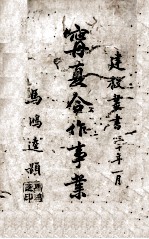 建設叢書 三十年一月
甯夏合作事業
馬鴻逵題